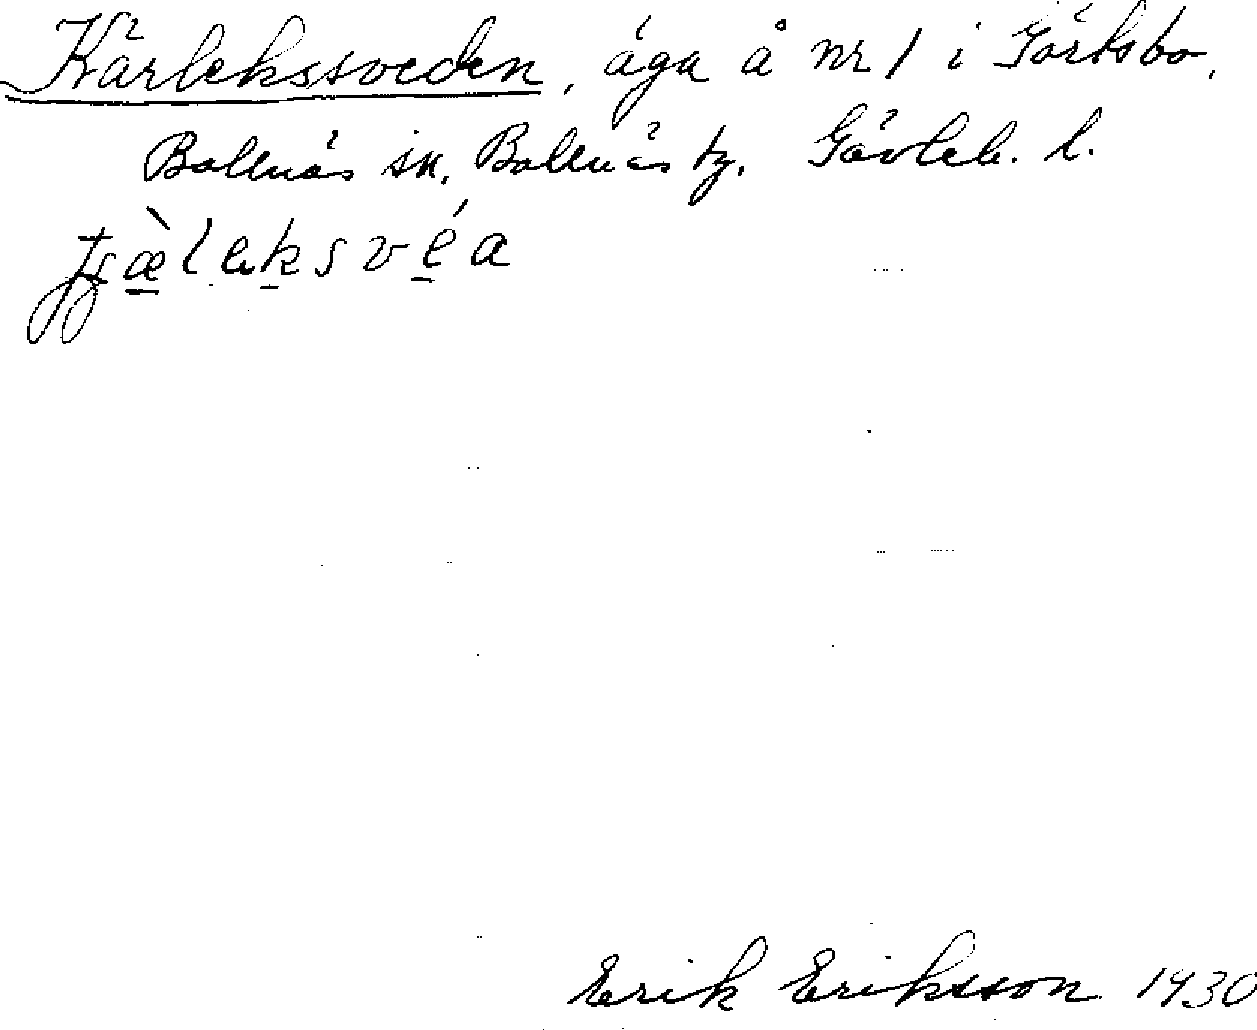 Kärlekssveden, äga å nr 1 i Görtsbo,
Bollnäs sn. Bollnäs tg. Gävleb. l.
Erik Eriksson 1930